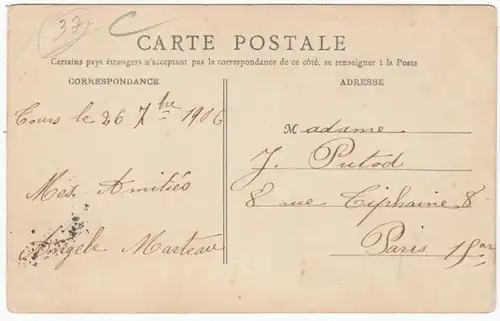 37
CARTE POSTALE
Certains pays étrangers n'acceptant pas la correspondance de ce côté, se renseigner à la Poste
CORRESPONDANCE
Tours le 26 7bre 1906
Mes Amitiés
Angèle Marteau
ADRESSE
Madame
J. Putod
8 rue Tiphaine 8
Paris 15ar